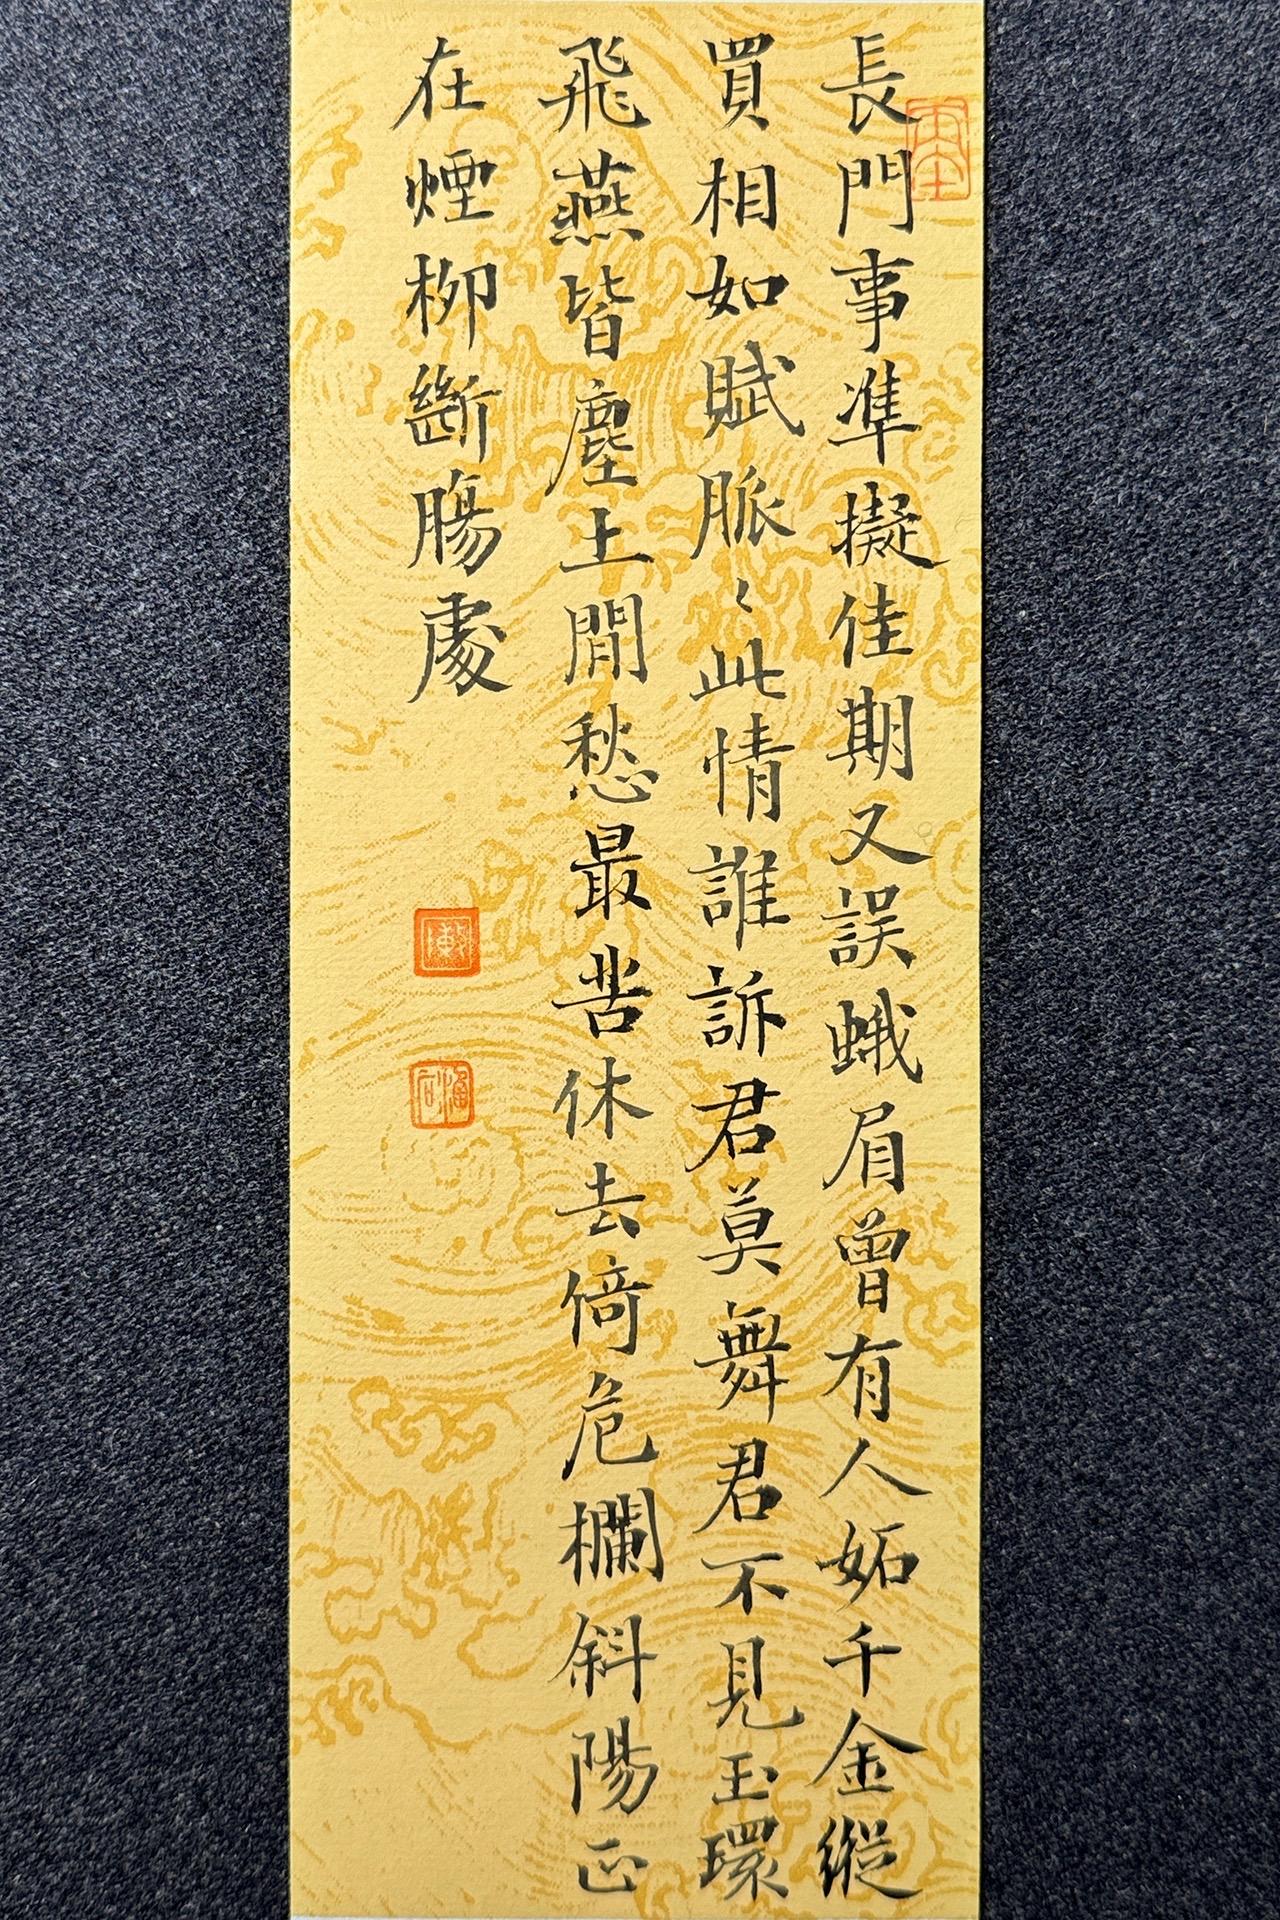 長門事準擬佳期又誤蛾眉曾有人妬千金縱
買相如賦脈〻此情誰訴君莫舞君不見玉環
飛燕皆塵土閒愁最苦休去倚危欄斜陽正
在煙柳斷腸處